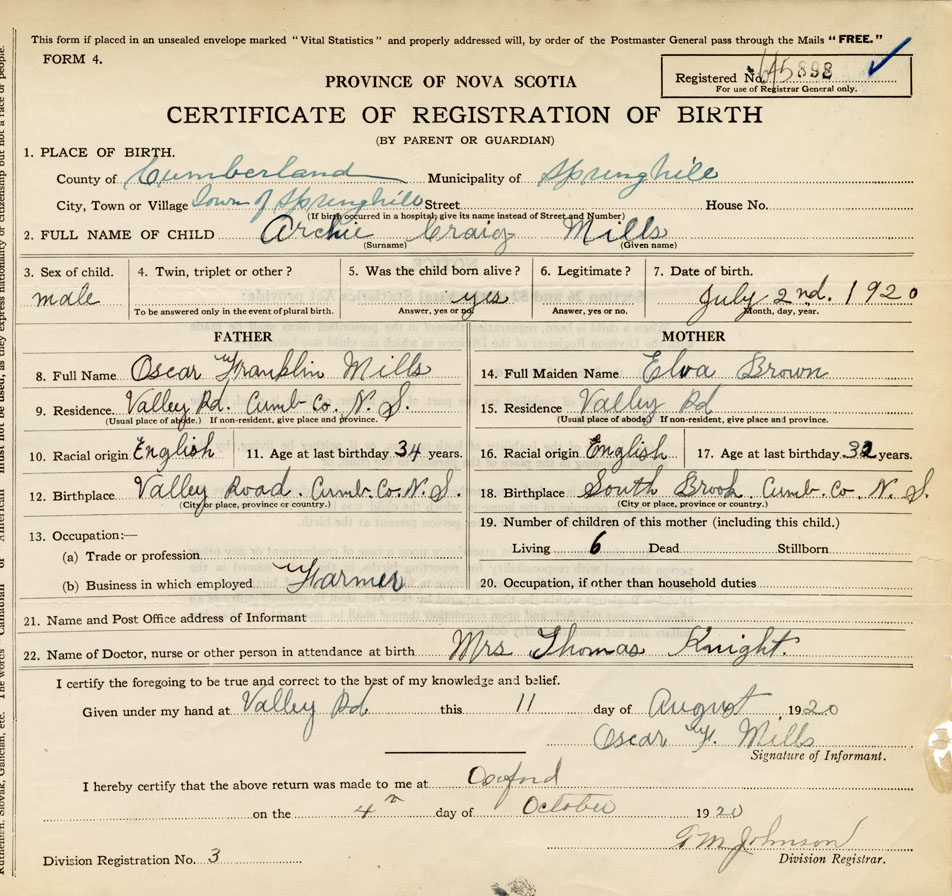 This form if placed in an unsealed envelope marked "Vital Statistics" and properly addressed will, by order of the Postmaster General pass through the Mails "FREE."
FORM 4.
Registered No. 45898
For use of Registrar General only.
PROVINCE OF NOVA SCOTIA
CERTIFICATE OF REGISTRATION OF BIRTH
(BY PARENT OR GUARDIAN)
1. PLACE OF BIRTH.
County of Cumberland Municipality of Springhill
City, Town or Village Town of Springhill Street House No.
(If birth occurred in a hospital, give its name instead of Street and Number)
2. FULL NAME OF CHILD Archie Craig Mills
(Surname) (Given name)
3. Sex of child. 4. Twin, triplet or other? 5. Was the child born alive? 6. Legitimate? 7. Date of birth.
male yes July 2nd. 1920
To be answered only in the event of plural birth. Answer, yes or no. Answer, yes or no. Month, day, year.
FATHER MOTHER
8. Full Name Oscar Franklin Mills 14. Full Maiden Name Elva Brown
9. Residence. Valley Rd. Cumb Co. N. S. 15. Residence Valley Rd
(Usual place of abode.) If non-resident, give place and province. (Usual place of abode.) If non-resident, give place and province.
10. Racial origin English 11. Age at last birthday 34 years. 16. Racial origin English 17. Age at last birthday 32 years.
12. Birthplace Valley Road. Cumb. Co. N. S. 18. Birthplace South Brook Cumb. Co. N. S.
(City or place, province or country.) (City or place, province or country.)
13. Occupation:— 19. Number of children of this mother (including this child.)
(a) Trade or profession Living 6 Dead Stillborn
(b) Business in which employed Farmer 20. Occupation, if other than household duties
21. Name and Post Office address of Informant
22. Name of Doctor, nurse or other person in attendance at birth Mrs Thomas Knight.
I certify the foregoing to be true and correct to the best of my knowledge and belief.
Given under my hand at Valley Rd this 11 day of August 1920
Oscar F. Mills
Signature of Informant.
I hereby certify that the above return was made to me at Oxford
on the 4th day of October 1920
Johnson
Division Registration No. 3 Division Registrar.